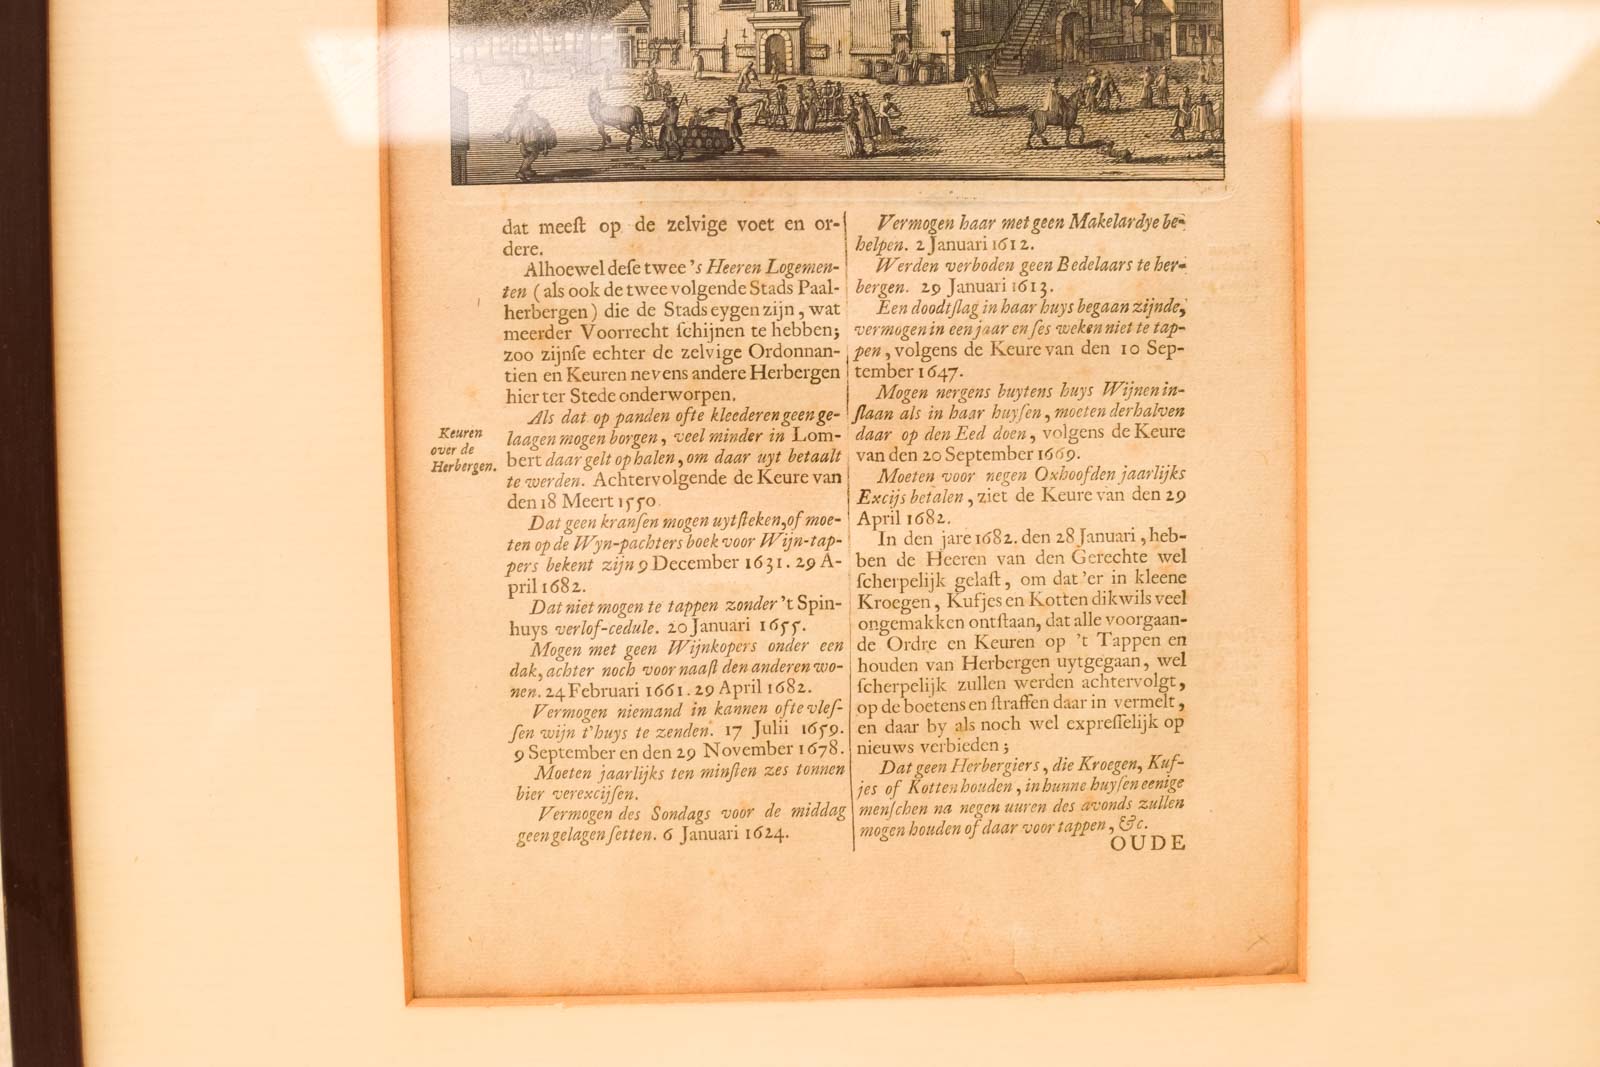 dat meeſt op de zelvige voet en or-
dere.
Alhoewel deſe twee 's Heeren Logemen-
ten ( als ook de twee volgende Stads Paal-
herbergen ) die de Stads eygen zijn, wat
meerder Voorrecht ſchijnen te hebben;
zoo zijnſe echter de zelvige Ordonnan-
tien en Keuren nevens andere Herbergen
hier ter Stede onderworpen.
Keuren
over de
Herbergen.
Als dat op panden ofte kleederen geen ge-
laagen mogen borgen, veel minder in Lom-
bert daar gelt op halen, om daar uyt betaalt
te werden. Achtervolgende de Keure van
den 18 Meert 1550.
Dat geen kranſen mogen uytſteken, of moe-
ten op de Wyn-pachters boek voor Wijn-tap-
pers bekent zijn 9 December 1631. 29 A-
pril 1682.
Dat niet mogen te tappen zonder 't Spin-
huys verlof-cedule. 20 Januari 1655.
Mogen met geen Wijnkopers onder een
dak, achter noch voor naaſt den anderen wo-
nen. 24 Februari 1661. 29 April 1682.
Vermogen niemand in kannen ofte vleſ-
ſen wijn t'huys te zenden. 17 Julii 1659.
9 September en den 29 November 1678.
Moeten jaarlijks ten minſten zes tonnen
bier verexcijſen.
Vermogen des Sondags voor de middag
geen gelagen ſetten. 6 Januari 1624.
Vermogen haar met geen Makelardye be-
helpen. 2 Januari 1612.
Werden verboden geen Bedelaars te her-
bergen. 29 Januari 1613.
Een doodtſlag in haar huys begaan zijnde,
vermogen in een jaar en ſes weken niet te tap-
pen, volgens de Keure van den 10 Sep-
tember 1647.
Mogen nergens buytens huys Wijnen in-
ſlaan als in haar huyſen, moeten derhalven
daar op den Eed doen, volgens de Keure
van den 20 September 1669.
Moeten voor negen Oxhoofden jaarlijks
Excijs betalen, ziet de Keure van den 29
April 1682.
In den jare 1682. den 28 Januari, heb-
ben de Heeren van den Gerechte wel
ſcherpelijk gelaſt, om dat 'er in kleene
Kroegen, Kufjes en Kotten dikwils veel
ongemakken ontſtaan, dat alle voorgaan-
de Ordre en Keuren op 't Tappen en
houden van Herbergen uytgegaan, wel
ſcherpelijk zullen werden achtervolgt,
op de boetens en ſtraffen daar in vermelt,
en daar by als noch wel expreſſelijk op
nieuws verbieden;
Dat geen Herbergiers, die Kroegen, Kuf-
jes of Kotten houden, in hunne huyſen eenige
menſchen na negen uuren des avonds zullen
mogen houden of daar voor tappen, &c.
OUDE